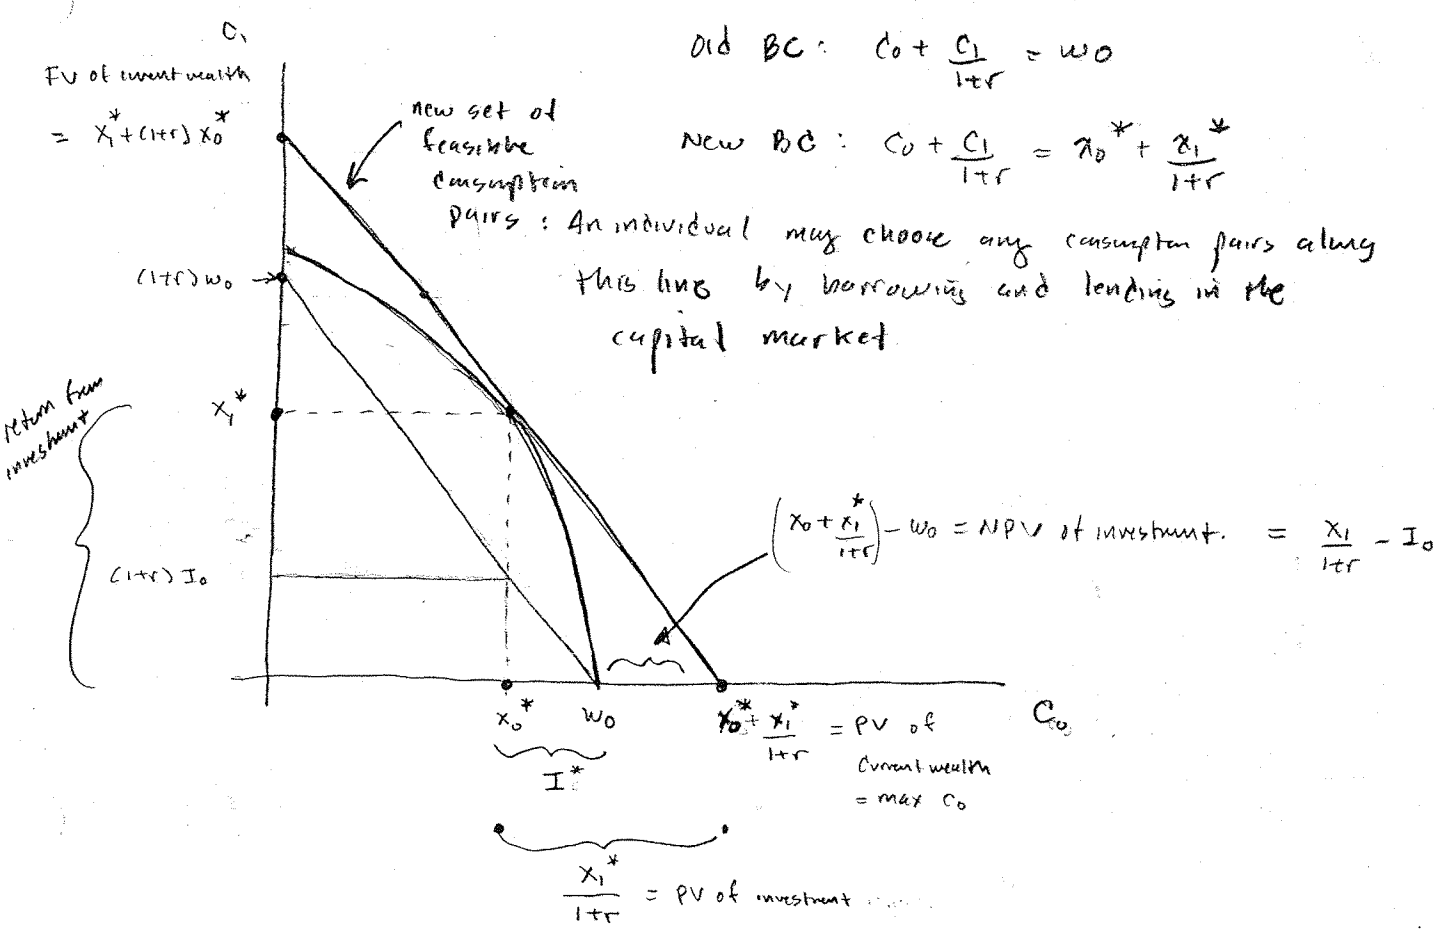 C₁
FV of current wealth
= X₁* + (1+r) X₀*
Old BC : C₀ + C₁/(1+r) = W₀
New BC : C₀ + C₁/(1+r) = X₀* + X₁*/(1+r)
new set of
feasible
consumption
pairs : An individual may choose any consumption pairs along
this line by borrowing and lending in the
capital market
(1+r) W₀
return from
investment
X₁*
(1+r) I₀
(X₀ + X₁*/(1+r)) - W₀ = NPV of investment. = X₁/(1+r) - I₀
X₀*
W₀
X₀* + X₁*/(1+r) = PV of
current wealth
= max C₀
C₀
I*
X₁*/(1+r) = PV of investment